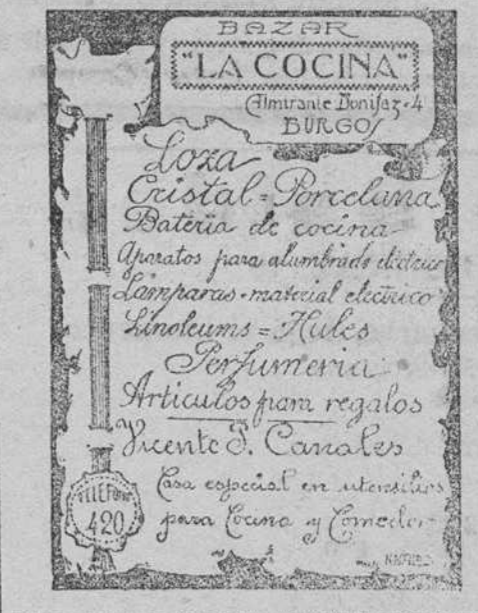 BAZAR
"LA COCINA"
Almirante Bonifaz-4
BURGOS
Loza
Cristal=Porcelana
Bateria de cocina
Aparatos para alumbrado eléctrico
Lámparas-material electrico
Linoleums=Hules
Perfumeria
Articulos para regalos
Vicente J. Canales
Casa especial en utensilios
para Cocina y Comedor
TELEFONO
420